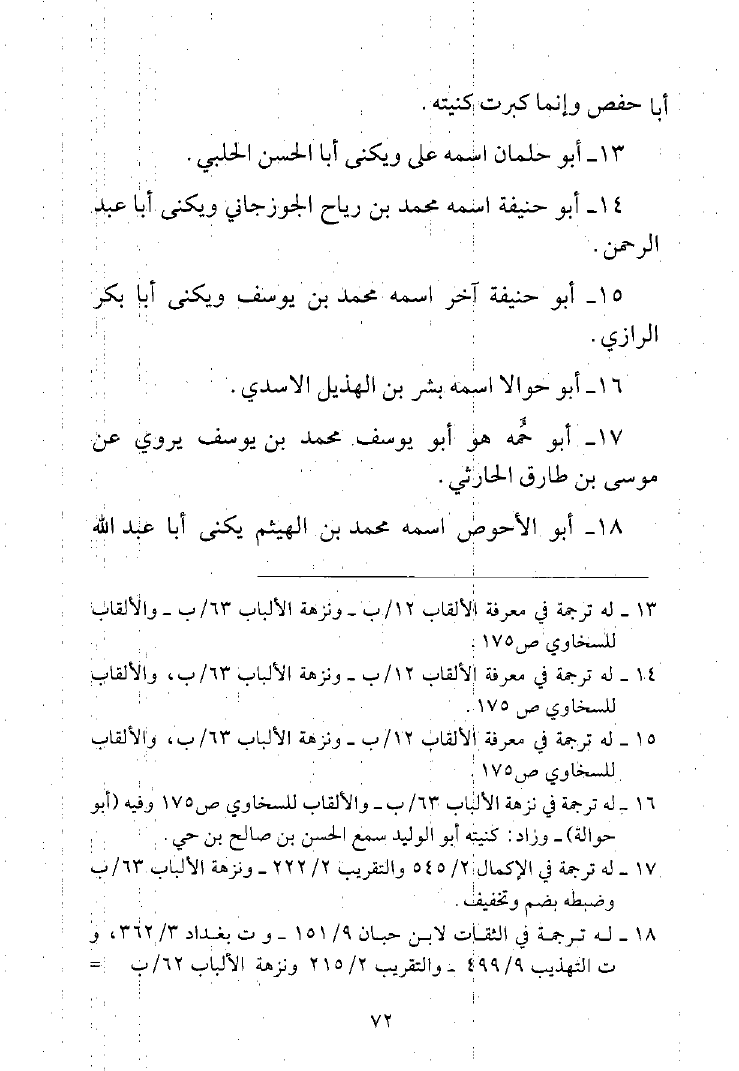 أبا حفص وإنما كبرت كنيته .
١٣ـ أبو حلمان اسمه على ويكنى أبا الحسن الحلبي .
١٤ـ أبو حنيفة اسمه محمد بن رياح الجوزجاني ويكنى أبا عبد
الرحمن .
١٥ـ أبو حنيفة آخر اسمه محمد بن يوسف ويكنى أبا بكر
الرازي .
١٦ـ أبو حوالا اسمه بشر بن الهذيل الاسدي .
١٧ـ أبو حُمه هو أبو يوسف محمد بن يوسف يروي عن
موسى بن طارق الحارثي .
١٨ـ أبو الأحوص اسمه محمد بن الهيثم يكنى أبا عبد الله
١٣ ـ له ترجمة في معرفة الألقاب ١٢/ب ـ ونزهة الألباب ٦٣/ب ـ والألقاب
للسخاوي ص١٧٥ .
١٤ ـ له ترجمة في معرفة الألقاب ١٢/ب ـ ونزهة الألباب ٦٣/ب، والألقاب
للسخاوي ص ١٧٥ .
١٥ ـ له ترجمة في معرفة الألقاب ١٢/ب ـ ونزهة الألباب ٦٣/ب، والألقاب
للسخاوي ص١٧٥ .
١٦ ـ له ترجمة في نزهة الألباب ٦٣/ب ـ والألقاب للسخاوي ص١٧٥ وفيه (أبو
حوالة) ـ وزاد: كنيته أبو الوليد سمع الحسن بن صالح بن حي .
١٧ ـ له ترجمة في الإكمال ٢/ ٥٤٥ والتقريب ٢/ ٢٢٢ ـ ونزهة الألباب ٦٣/ب
وضبطه بضم وتخفيف .
١٨ ـ له ترجمة في الثقات لابن حبان ٩/ ١٥١ ـ و ت بغداد ٣/ ٣٦٢، و
ت التهذيب ٩/ ٤٩٩ ـ والتقريب ٢/ ٢١٥ ونزهة الألباب ٦٢/ب =
٧٢